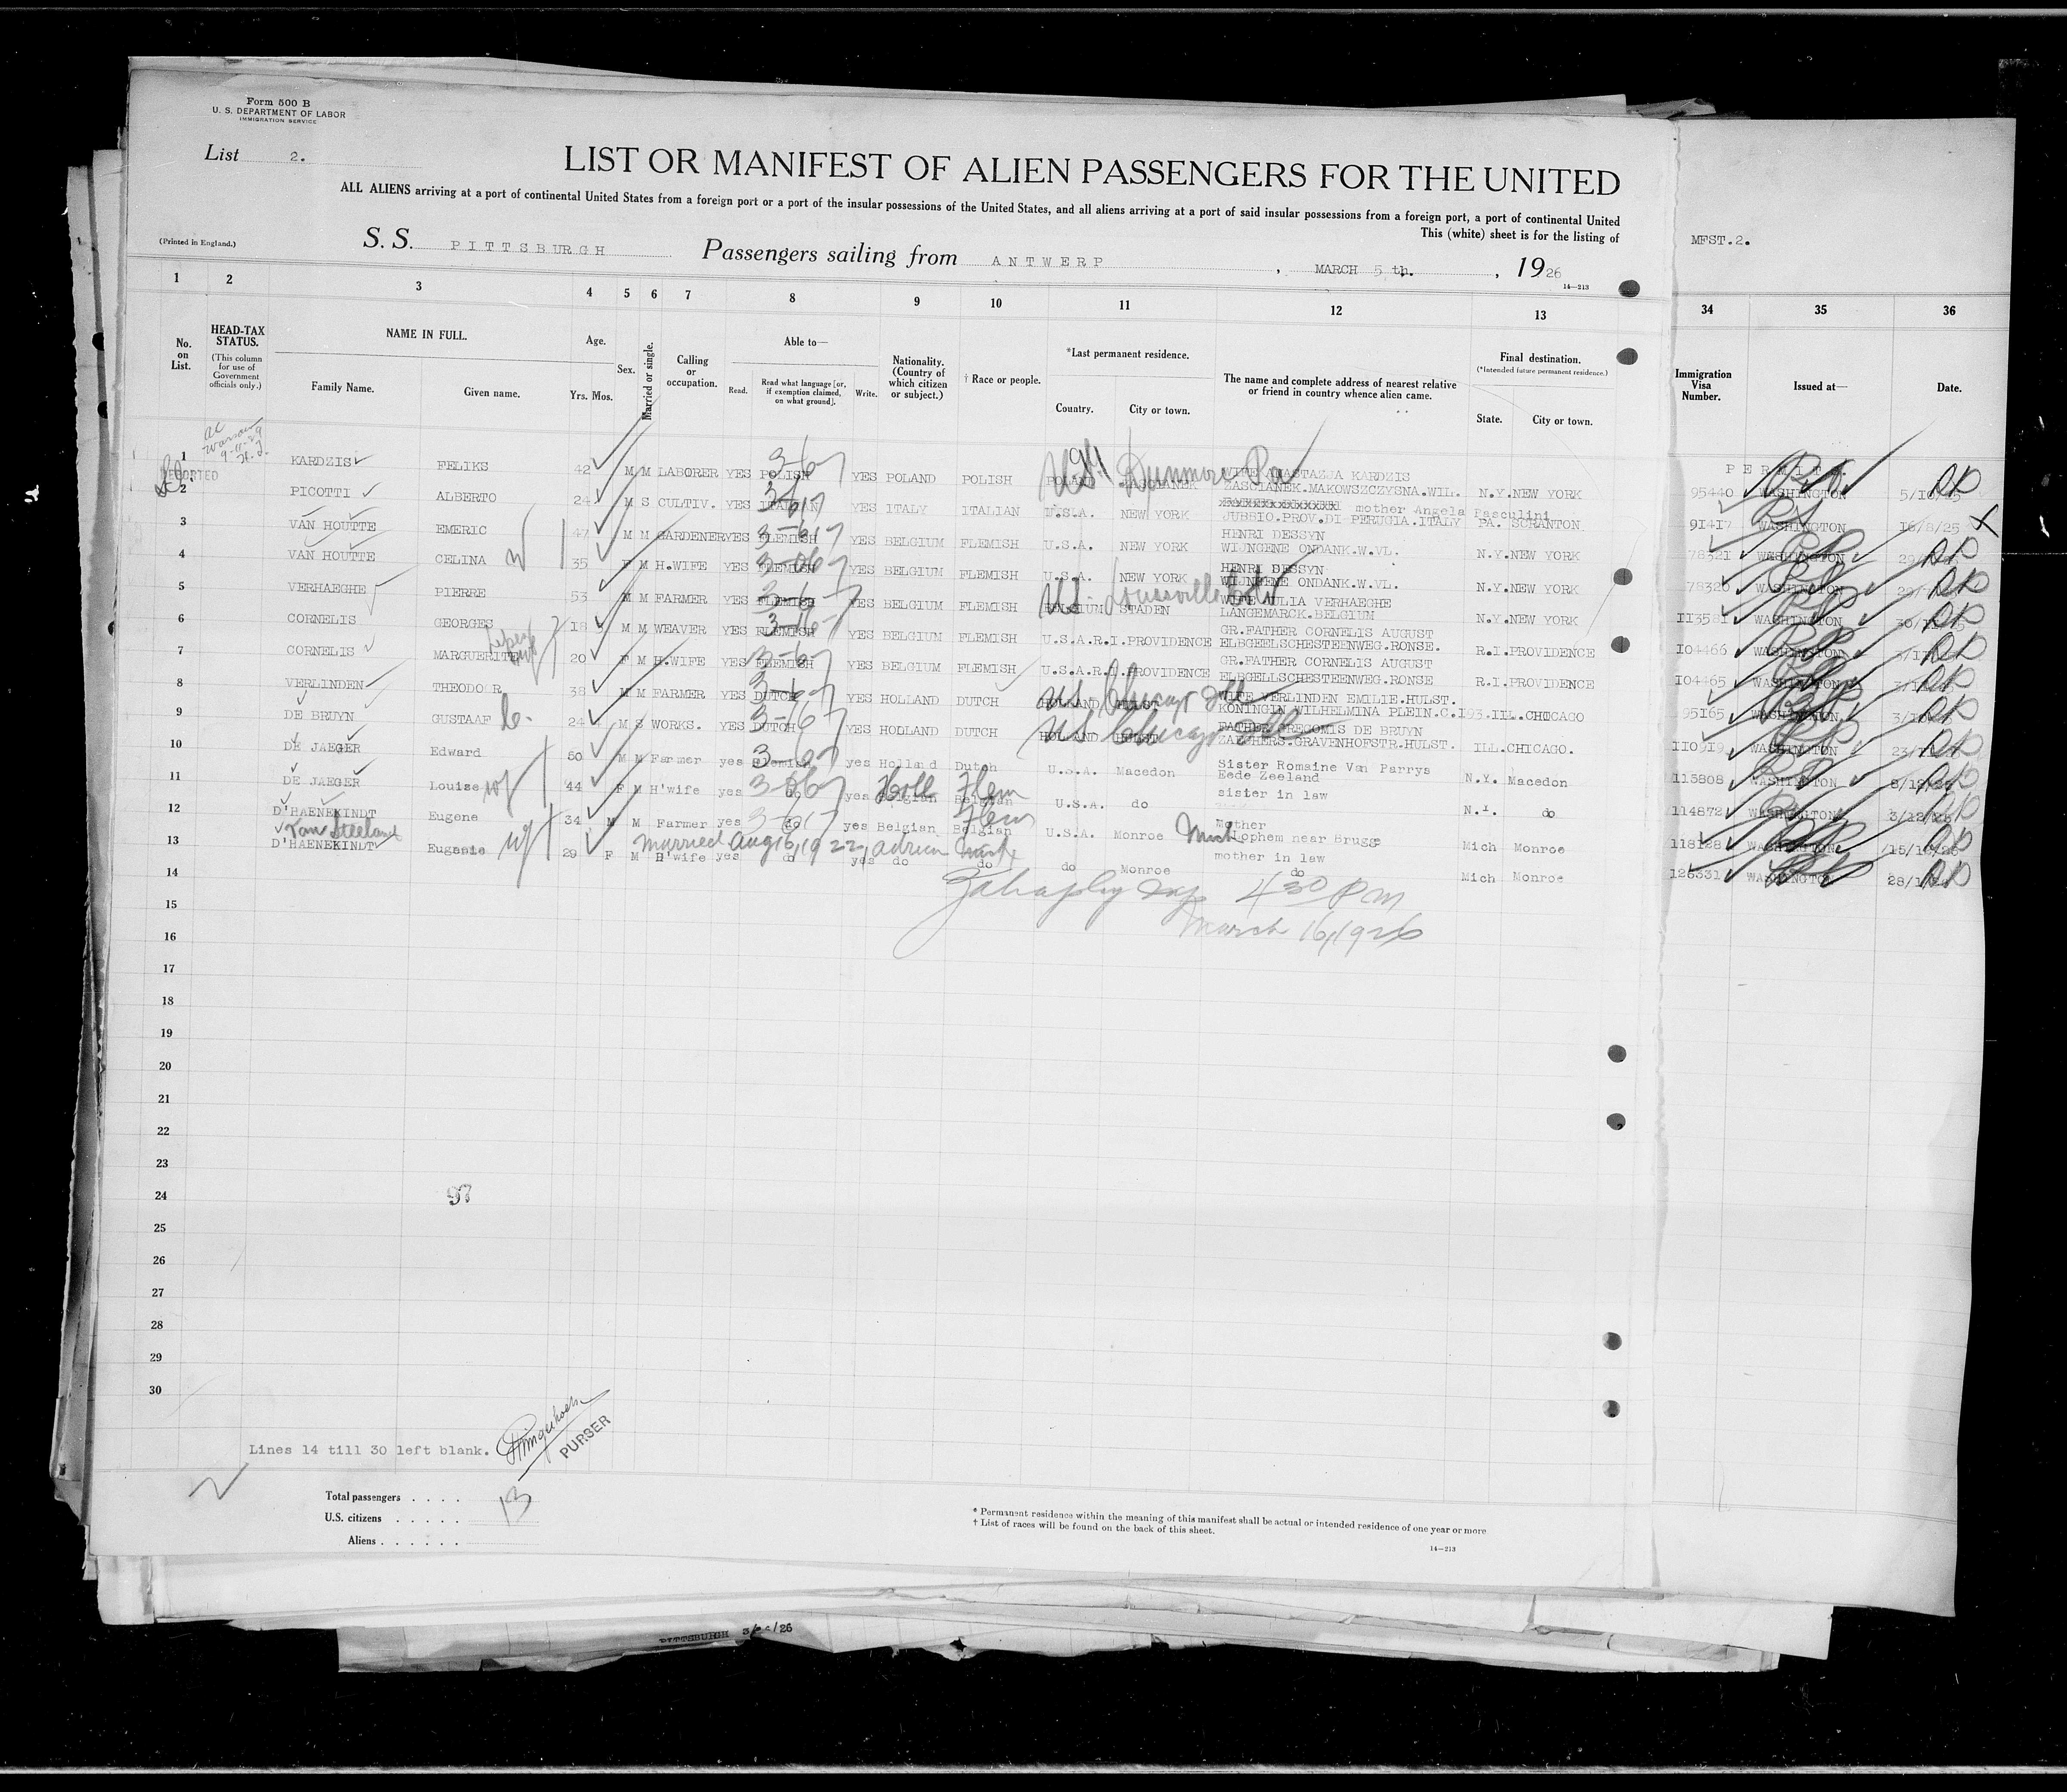 Form 500 B
U. S. DEPARTMENT OF LABOR
IMMIGRATION SERVICE
List 2.
LIST OR MANIFEST OF ALIEN PASSENGERS FOR THE UNITED
ALL ALIENS arriving at a port of continental United States from a foreign port or a port of the insular possessions of the United States, and all aliens arriving at a port of said insular possessions from a foreign port, a port of continental United
This (white) sheet is for the listing of
(Printed in England.)
S. S. PITTSBURGH Passengers sailing from ANTWERP, MARCH 5 th., 1926
14—213
MFST.2.
1 2 3 4 5 6 7 8 9 10 11 12 13 34 35 36
No. on List.
HEAD-TAX STATUS.
(This column for use of Government officials only.)
NAME IN FULL.
Family Name. Given name.
Age.
Yrs. Mos.
Sex.
Married or single.
Calling or occupation.
Able to—
Read. Read what language [or, if exemption claimed, on what ground]. Write.
Nationality. (Country of which citizen or subject.)
† Race or people.
*Last permanent residence.
Country. City or town.
The name and complete address of nearest relative or friend in country whence alien came.
Final destination.
(*Intended future permanent residence.)
State. City or town.
Immigration Visa Number.
Issued at—
Date.
PERMIT
1 KARDZIS FELIKS 42 M M LABORER YES POLISH YES POLAND POLISH POLAND US Dunmore Pa WIFE ANASTAZJA KARDZIS
ZASCIANEK.MAKOWSZCZYSNA.WIL. N.Y. NEW YORK 95440 WASHINGTON
2 PICOTTI ALBERTO 24 M S CULTIV. YES ITALIAN YES ITALY ITALIAN U.S.A. NEW YORK mother Angela Pasculini
JUBBIO.PROV.DI PERUGIA.ITALY PA. SCRANTON 91417 WASHINGTON 16/8/25
3 VAN HOUTTE EMERIC 47 M M GARDENER YES FLEMISH YES BELGIUM FLEMISH U.S.A. NEW YORK HENRI DESSYN
WIJNGENE ONDANK.W.VL. N.Y. NEW YORK 78321 WASHINGTON
4 VAN HOUTTE CELINA 35 F M H.WIFE YES FLEMISH YES BELGIUM FLEMISH U.S.A. NEW YORK HENRI DESSYN
WIJNGENE ONDANK.W.VL. N.Y. NEW YORK 78320 WASHINGTON
5 VERHAEGHE PIERRE 53 M M FARMER YES FLEMISH YES BELGIUM FLEMISH BELGIUM STADEN WIFE JULIA VERHAEGHE
LANGEMARCK.BELGIUM N.Y. NEW YORK 113581 WASHINGTON
6 CORNELIS GEORGES 18 M M WEAVER YES FLEMISH YES BELGIUM FLEMISH U.S.A. R.I. PROVIDENCE GR.FATHER CORNELIS AUGUST
ELBGEELSCHESTEENWEG.RONSE. R.I. PROVIDENCE 104466 WASHINGTON
7 CORNELIS MARGUERITE 20 F M H.WIFE YES FLEMISH YES BELGIUM FLEMISH U.S.A. R.I. PROVIDENCE GR.FATHER CORNELIS AUGUST
ELBGELLSCHESTEENWEG.RONSE R.I. PROVIDENCE 104465 WASHINGTON
8 VERLINDEN THEODOOR 38 M M FARMER YES DUTCH YES HOLLAND DUTCH HOLLAND HULST US Chicago Ill WIFE VERLINDEN EMILIE.HULST.
KONINGIN WILHELMINA PLEIN.C.193. ILL. CHICAGO 95165 WASHINGTON
9 DE BRUYN GUSTAAF 24 M S WORKS. YES DUTCH YES HOLLAND DUTCH HOLLAND HULST US Chicago Ill FATHER GREGOMIS DE BRUYN
ZAECHERS.GRAVENHOFSTR.HULST. ILL. CHICAGO. 110919 WASHINGTON
10 DE JAEGER Edward 50 M M Farmer yes Flemish yes Holland Dutch U.S.A. Macedon Sister Romaine Van Parrys
Eede Zeeland N.Y. Macedon 115808 WASHINGTON
11 DE JAEGER Louise 44 F M H'wife yes do yes Belgian Holl Belgian Flem U.S.A. do sister in law
do 114872 WASHINGTON
12 D'HAENEKINDT Eugene 34 M M Farmer yes do yes Belgian Belgian Flem U.S.A. Monroe Mich Mother
Lophem near Brugge Mich Monroe 118128 WASHINGTON
Van Steeland
Married Aug 16, 1922, Adrian Mich
13 D'HAENEKINDT Eugenie 29 F M H'wife yes do yes do do do Monroe mother in law
do Mich Monroe 126331 WASHINGTON
14
4 30 P m
15
March 16, 1926
16
17
18
19
20
21
22
23
24 97
25
26
27
28
29
30
Lines 14 till 30 left blank.
PURSER
Total passengers . . . . 13
U.S. citizens . . . . .
Aliens . . . . . .
* Permanent residence within the meaning of this manifest shall be actual or intended residence of one year or more
† List of races will be found on the back of this sheet.
14—213
PITTSBURGH